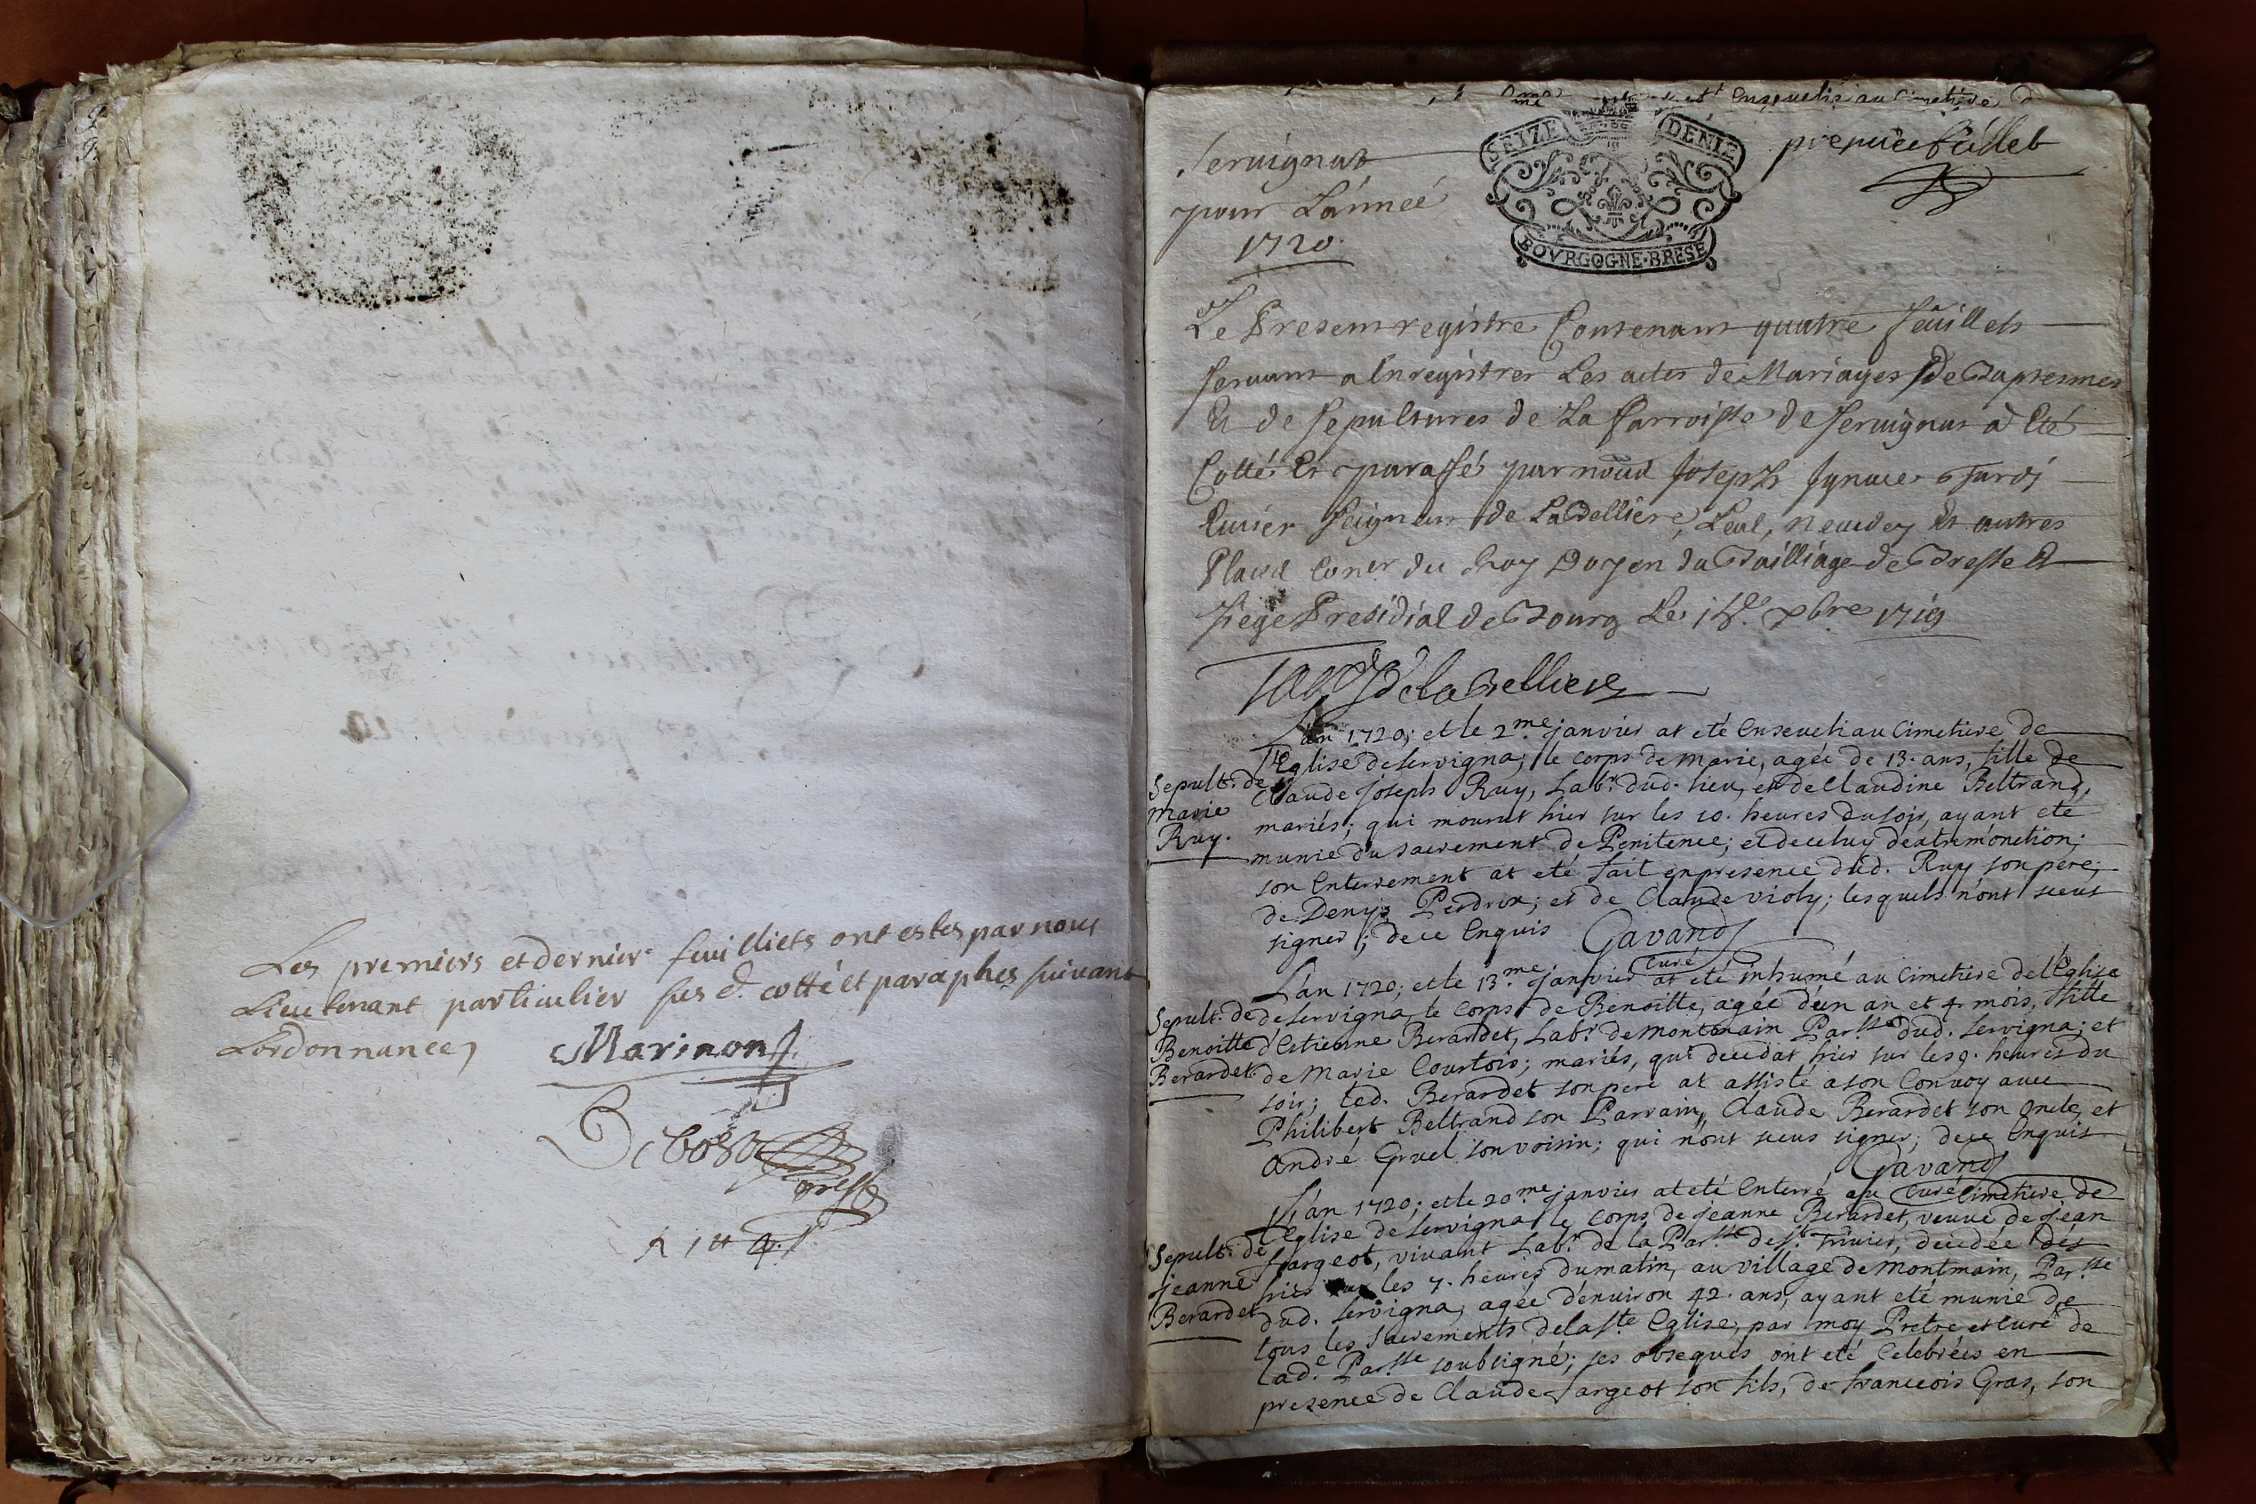 Les premiers et dernier feuilliets ont estes par nous
Lieutenant particulier sus d. cotté et paraphes suivant
Lordonnance
Marinon
Servignat
pour Lannéé
1720.
SEIZE DENIE
BOVRGOGNE·BRESE
premier feuillet
Le Present registre Contenant quatre feuillets
servant a Enregistrer Les actes de Mariages de Baptesmes
Et de sepultures de La Parroisse de servignat a Eté
Cotté Et paraffé par nous Joseph Ignace
Ecuier Seigneur de La Belliere, Leal, et autres
Places Coner du Roy Doyen du Bailliage de Bresse Et
siege Presidial de Bourg Le 18e. xbre 1719
De la Belliere
L'an 1720; et le 2.me janvier at eté Enseveli au Cimetiere de
l'Eglise de servigna; le corps de marie, agée de 13. ans, fille de
Claude joseph Ruy, Labr. dud. lieu, et de Claudine Beltrand,
mariés; qui mourut hier sur les 10. heures du soir, ayant eté
munie du sacrement de Penitence; et de celuy d'extremonction;
son Enterrement at eté fait en presence dud. Ruy son pere;
de Denys Perdrix; et de Claude violy; lesquels n'ont sceus
signer; de ce Enquis Gavand
Curé
Sepult. de
Marie
Ruy.
L'an 1720; et le 13.me janvier at eté inhumé au Cimetiere de l'Eglise
de servigna, le corps de Benoitte, agée d'un an et 4. mois, fille
d'Estienne Berardet, Labr. de montmain Parsse. dud. servigna; et
de Marie Courtois; mariés, qui decedat hier sur les 9. heures du
soir; led. Berardet son pere at assisté a son Convoy avec
Philibert Beltrand son Parrain, Claude Berardet son oncle, et
André Gruel son voisin; qui n'ont sceus signer; de ce Enquis
Gavand
Curé
Sepult. de
Benoitte
Berardet.
L'an 1720; et le 20.me janvier at eté Enterré au Cimetiere de
l'Eglise de servigna le corps de jeanne Berardet, veuve de jean
sargeot, vivant Labr. de la Parsse. de st. Trivier, decedée dés
hier les 7. heures du matin, au village de Montmain, Parsse.
dud. servigna, agée d'environ 42. ans, ayant eté munie de
tous les sacrements de la ste. Eglise, par moy Pretre et Curé de
lade. Parsse. soubsigné; ses obseques ont eté Celebrées en
presence de Claude sargeot son fils, de françois Gras, son
Sepult. de
jeanne
Berardet